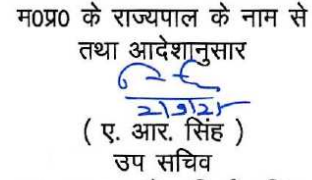 म0प्र0 के राज्यपाल के नाम से
तथा आदेशानुसार
2|9|25
( ए. आर. सिंह )
उप सचिव